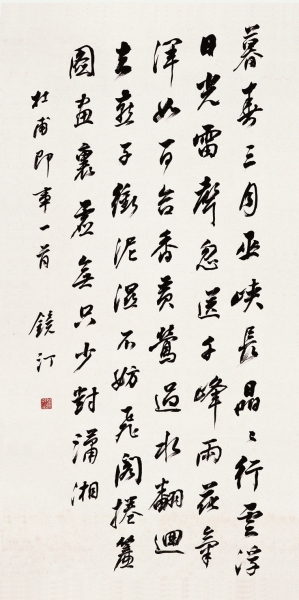 暮春三月巫峽長晶〻行雲浮
日光雷聲忽送千峰雨花氣
渾如百合香黃鶯過水翻迴
去燕子銜泥濕不妨飛閣捲簾
圖畫裏虛無只少對瀟湘
杜甫即事一首 鏡汀